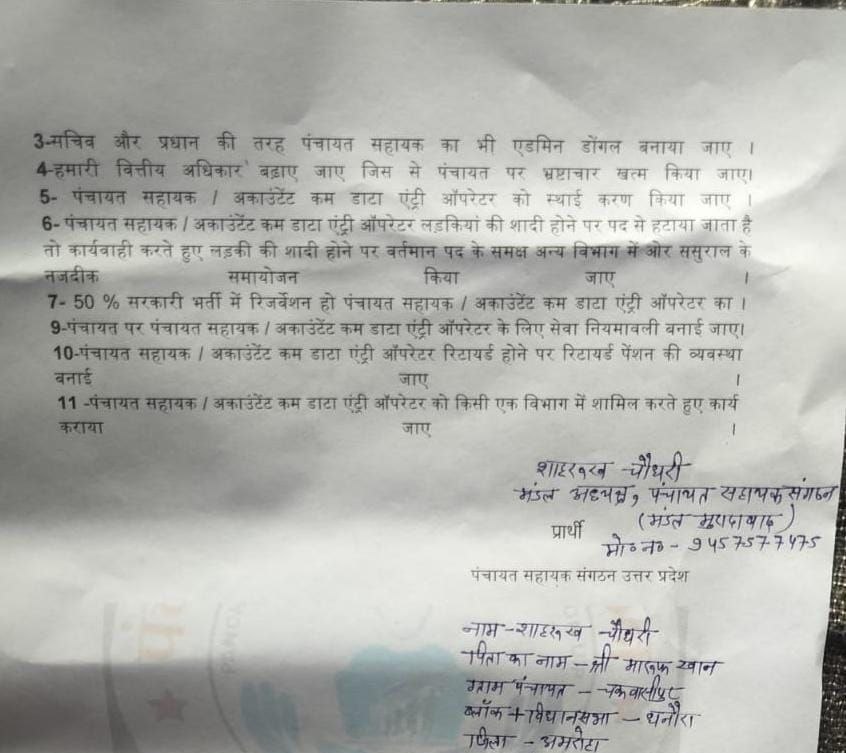 3-सचिव और प्रधान की तरह पंचायत सहायक का भी एडमिन डोंगल बनाया जाए ।
4-हमारी वित्तीय अधिकार बढ़ाए जाए जिस से पंचायत पर भ्रष्टाचार खत्म किया जाए।
5- पंचायत सहायक / अकाउंटेंट कम डाटा एंट्री ऑपरेटर को स्थाई करण किया जाए ।
6- पंचायत सहायक / अकाउंटेंट कम डाटा एंट्री ऑपरेटर लड़कियां की शादी होने पर पद से हटाया जाता है
तो कार्यवाही करते हुए लड़की की शादी होने पर वर्तमान पद के समक्ष अन्य विभाग में ओर ससुराल के
नजदीक समायोजन किया जाए ।
7- 50 % सरकारी भर्ती में रिजर्वेशन हो पंचायत सहायक / अकाउंटेंट कम डाटा एंट्री ऑपरेटर का ।
9-पंचायत पर पंचायत सहायक / अकाउंटेंट कम डाटा एंट्री ऑपरेटर के लिए सेवा नियमावली बनाई जाए।
10-पंचायत सहायक / अकाउंटेंट कम डाटा एंट्री ऑपरेटर रिटायर्ड होने पर रिटायर्ड पेंशन की व्यवस्था
बनाई जाए ।
11 -पंचायत सहायक / अकाउंटेंट कम डाटा एंट्री ऑपरेटर को किसी एक विभाग में शामिल करते हुए कार्य
कराया जाए ।
शाहरूख चौधरी
मंडल अध्यक्ष, पंचायत सहायक संगठन
(मंडल मुरादाबाद)
प्रार्थी
मो०न० - 9457577475
पंचायत सहायक संगठन उत्तर प्रदेश
नाम - शाहरूख चौधरी
पिता का नाम - श्री मारूफ खान
ग्राम पंचायत -
ब्लॉक + विधानसभा - धनौरा
जिला - अमरोहा